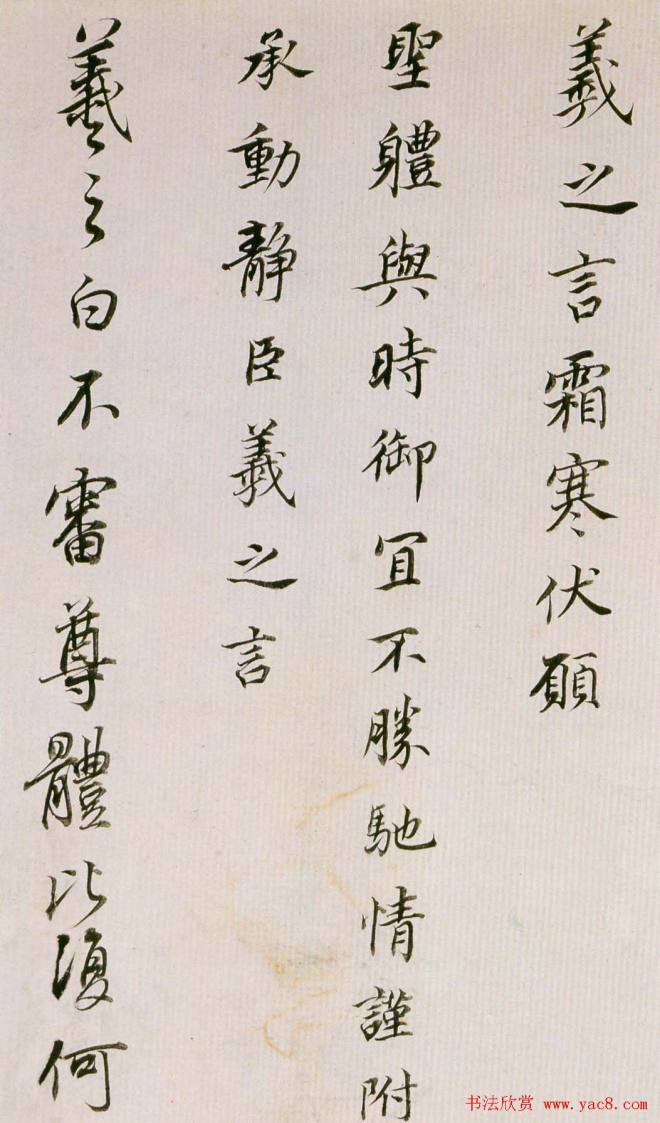 羲之言霜寒伏願
聖軆與時御宜不勝馳情謹附
承動靜臣羲之言
羲之白不審尊體比復何
书法欣赏 www.yac8.com